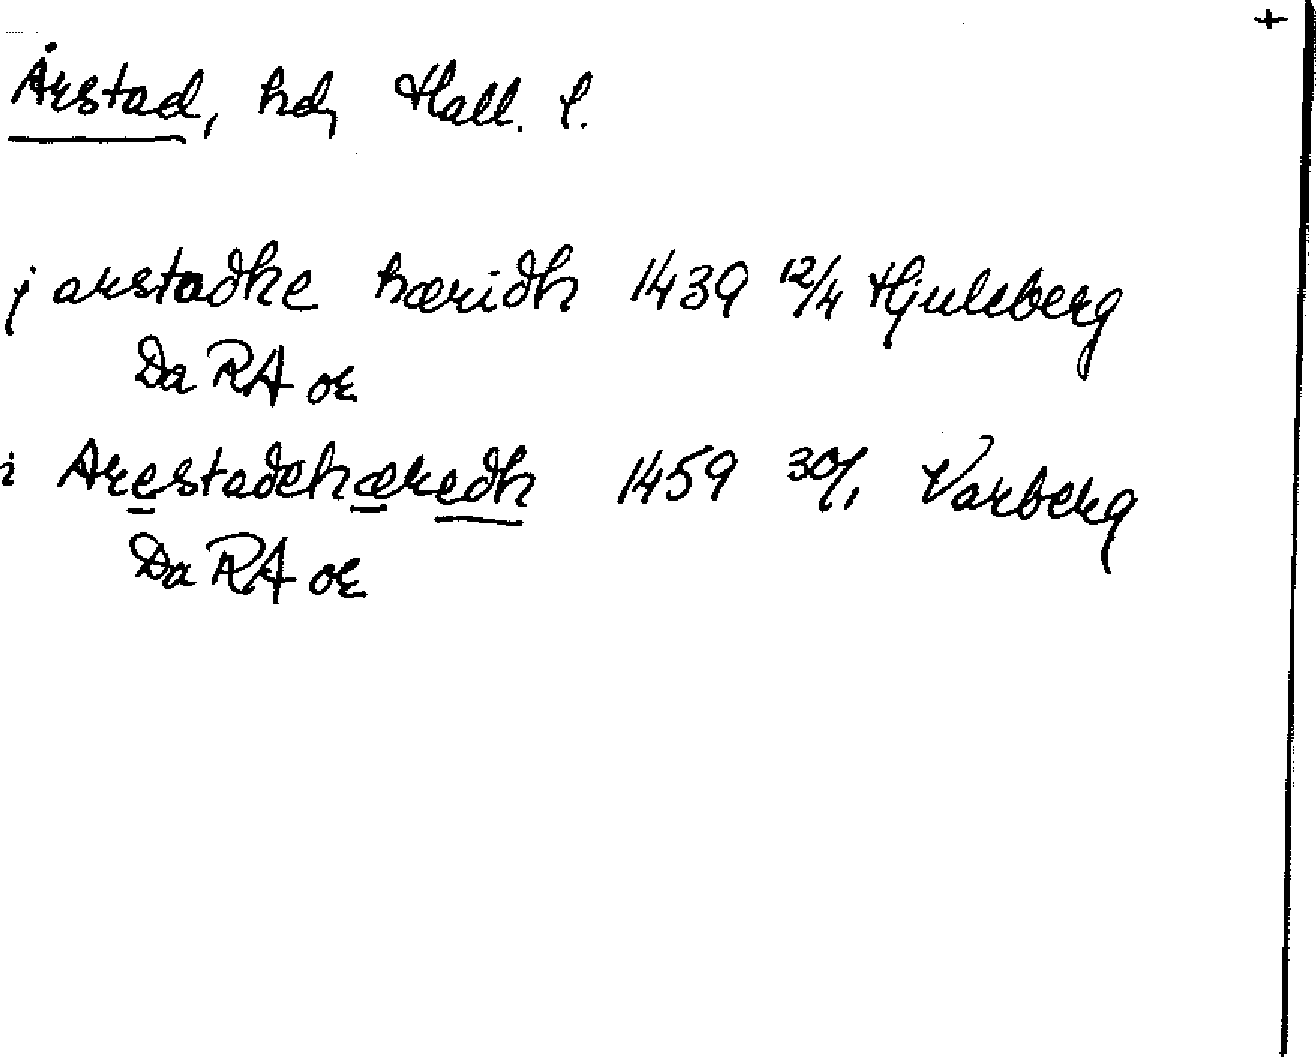 +
Årstad, hd, Hall. l.
j arstadhe hæridh 1439 12/4 Hjuleberg
Da RA or
i Arestadehæredh 1459 30/1 Varberg
Da RA or